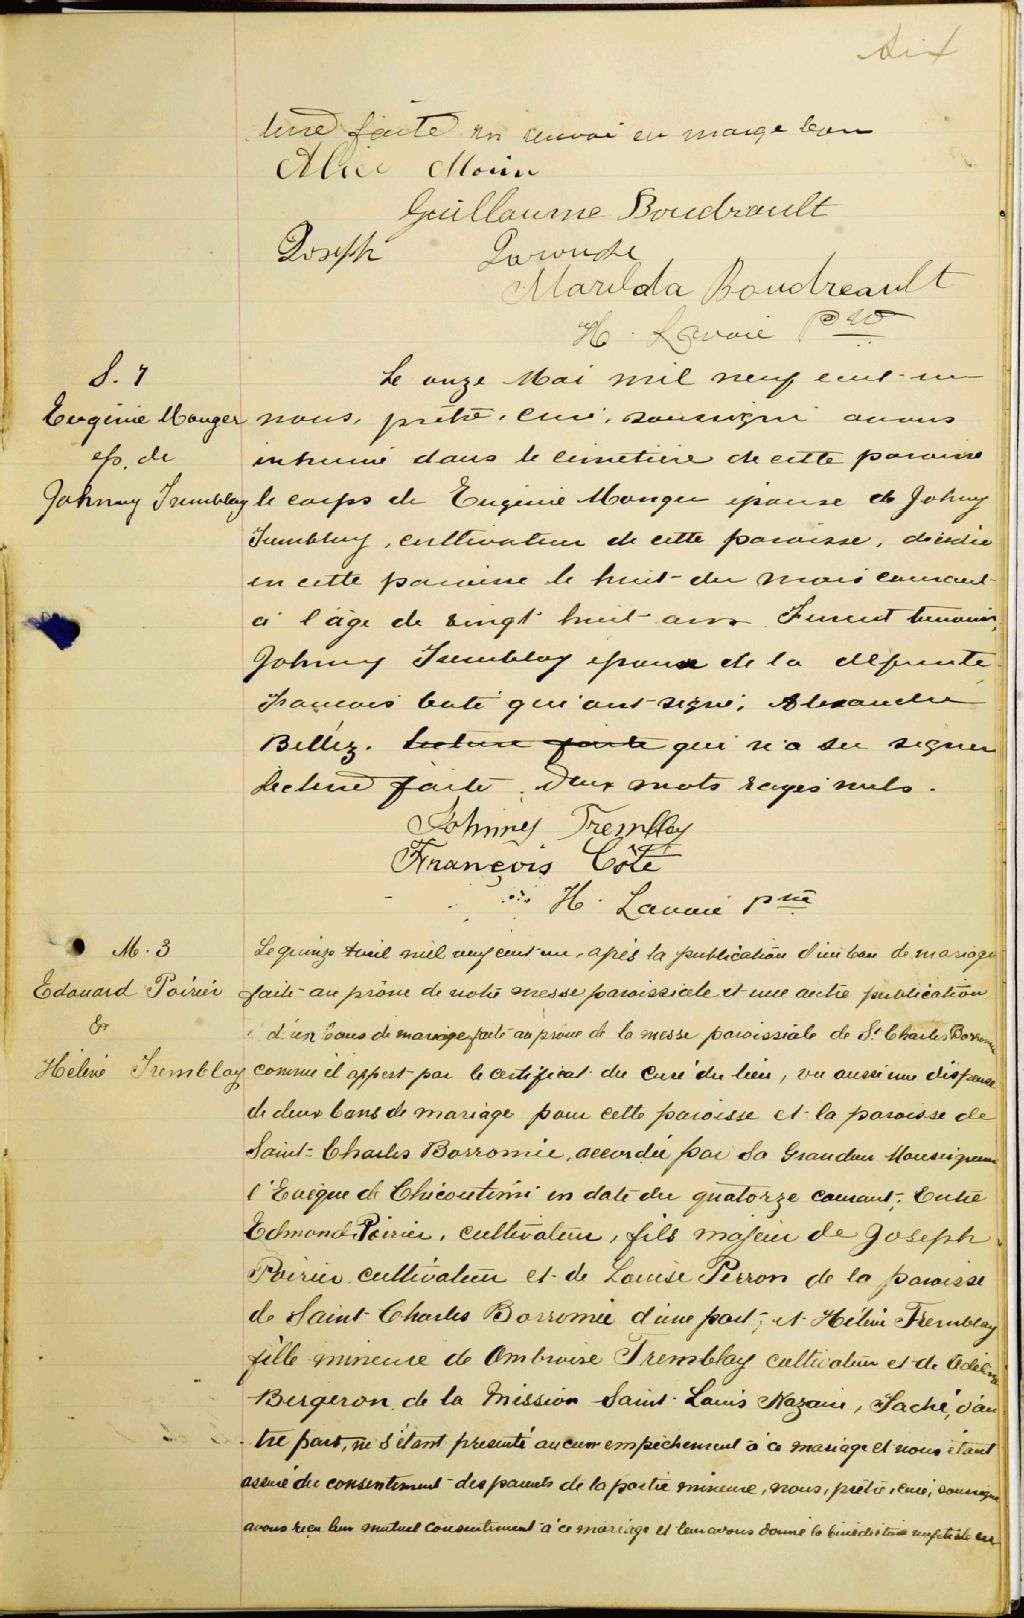 dix
ture faite un renvoi en marge bon
Alice Morin
Guillaume Boudrault
Joseph Larouche
Marilda Boudreault
H. Lavoie Ptre
S. 7
Eugénie Monger
ép. de
Johnny Tremblay
Le onze Mai mil neuf cent un
nous, prêtre, curé, soussigné avons
inhumé dans le cimetière de cette paroisse
le corps de Eugénie Monger épouse de Johny
Tremblay, cultivateur de cette paroisse, décédée
en cette paroisse le huit du mois courant
à l'âge de vingt huit ans. Furent témoins,
Johnny Tremblay époux de la défunte
François Coté qui ont signé, Alexandre
Bellez. Lecture faite qui n'a su signer
Lecture faite. Deux mots rayés nuls.
Johnney Tremblay
François Côté
H. Lavoie Ptre
M. 3
Edouard Poirier
&
Hélène Tremblay
Le quinze Avril mil neuf cent un, après la publication d'un ban de mariage
faite au prône de notre messe paroissiale et une autre publication
d'un bans de mariage faite au prône de la messe paroissiale de St Charles Borromée
comme il appert par le certificat du curé du lieu, vu aussi une dispense
de deux bans de mariage pour cette paroisse et la paroisse de
Saint-Charles Borromée, accordée par Sa Grandeur Monseigneur
l'Evêque de Chicoutimi en date du quatorze courant; Entre
Edmond Poirier, cultivateur, fils majeur de Joseph
Poirier cultivateur et de Louise Perron de la paroisse
de Saint Charles Borromée d'une part; et Hélène Tremblay
fille mineure de Ambroise Tremblay cultivateur et de Adéline
Bergeron de la Mission Saint Louis Nazaire, Taché, d'au
tre part, ne s'étant présenté aucun empêchement à ce mariage et nous étant
assuré du consentement des parents de la partie mineure, nous, prêtre, curé, soussigné
avons reçu leur mutuel consentement à ce mariage et leur avons donné la bénédiction nuptiale en